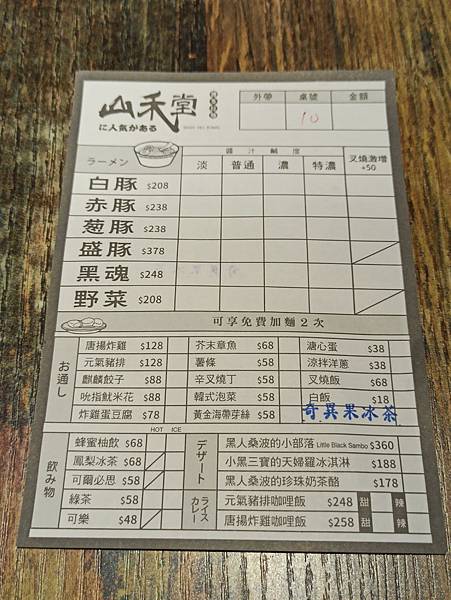 山禾堂
に人気がある
外帶 桌號 金額
10
醬汁鹹度
ラーメン 淡 普通 濃 特濃 叉燒激增 +50
白豚 $208
赤豚 $238
葱豚 $238
盛豚 $378
黑魂 $248
野菜 $208
可享免費加麵2次
お通し
唐揚炸雞 $128 芥末章魚 $68 溏心蛋 $38
元氣豬排 $128 薯條 $58 涼拌洋蔥 $38
麒麟餃子 $88 辛叉燒丁 $58 叉燒飯 $68
吮指魷米花 $88 韓式泡菜 $58 白飯 $18
炸雞蛋豆腐 $78 黃金海帶芽絲 $58 奇異果冰茶
HOT ICE
飲み物
蜂蜜柚飲 $68
鳳梨冰茶 $68
可爾必思 $58
綠茶 $58
可樂 $48
デザート
黑人桑波的小部落 Little Black Sambo $360
小黑三寶的天婦羅冰淇淋 $188
黑人桑波的珍珠奶茶酪 $178
ライスカレー
元氣豬排咖哩飯 $248 甜 辣
唐揚炸雞咖哩飯 $258 甜 辣